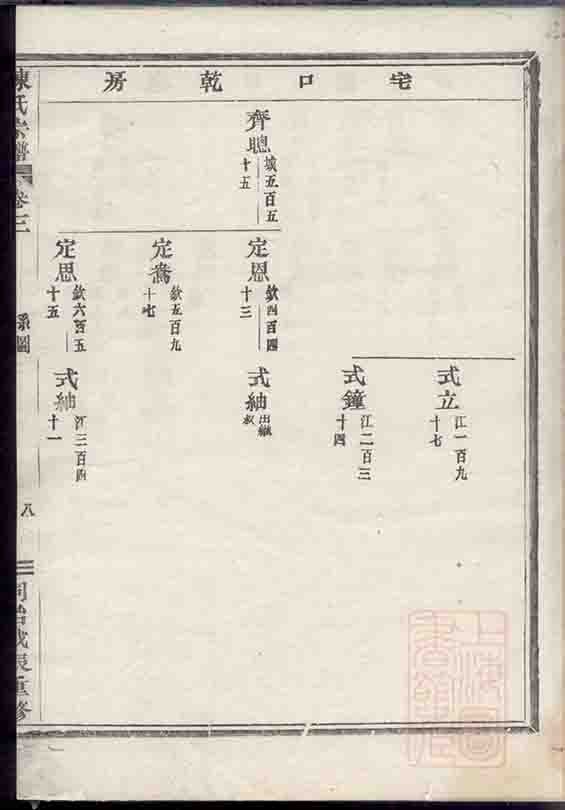 宅口乾房
齊聰
城五百五
十五
定恩
欽四百四
十三
定鴦
欽五百九
十七
定思
欽六百五
十五
式立
江一百九
十七
式鐘
江二百三
十四
式紬
出繼
叔
式紬
江三百四
十一
陳氏宗譜
卷三
系圖
八
同治戊辰重修
上海圖書館藏